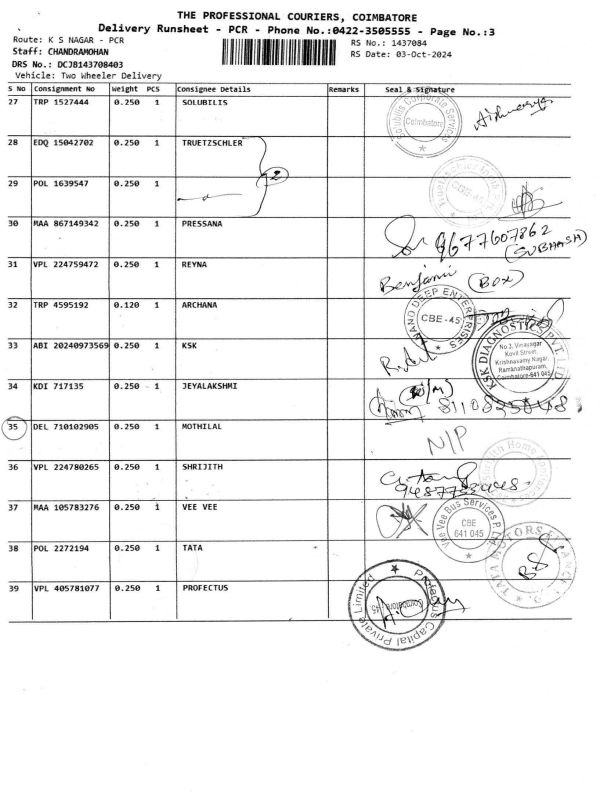 THE PROFESSIONAL COURIERS, COIMBATORE
Delivery Runsheet - PCR - Phone No.:0422-3505555 - Page No.:3
Route: K S NAGAR - PCR
RS No.: 1437084
Staff: CHANDRAMOHAN
RS Date: 03-Oct-2024
DRS No.: DCJ8143708403
Vehicle: Two Wheeler Delivery
S No Consignment No Weight PCS Consignee Details Remarks Seal & Signature
27 TRP 1527444 0.250 1 SOLUBILIS
Corporate Services
Coimbatore
28 EDQ 15042702 0.250 1 TRUETZSCHLER
29 POL 1639547 0.250 1
2
CBE-45
30 MAA 867149342 0.250 1 PRESSANA
9677607862
(SUBHASH)
31 VPL 224759472 0.250 1 REYNA
Benjamin (BOX)
32 TRP 4595192 0.120 1 ARCHANA
NANO DEEP ENTERPRISES
CBE-45
33 ABI 20240973569 0.250 1 KSK
KSK DIAGNOSTICS PVT. LTD
No 3, Vinayagar
Kovil Street
Krishnasamy Nagar,
Ramanathapuram,
Coimbatore-641 045
34 KDI 717135 0.250 1 JEYALAKSHMI
35 DEL 710102905 0.250 1 MOTHILAL
N/P
36 VPL 224780265 0.250 1 SHRIJITH
Home
37 MAA 105783276 0.250 1 VEE VEE
Vee Vee Bus Services P Ltd
CBE
641 045
38 POL 2272194 0.250 1 TATA
TATA MOTORS FINANCE
39 VPL 405781077 0.250 1 PROFECTUS
Profectus Capital Private Limited
Coimbatore